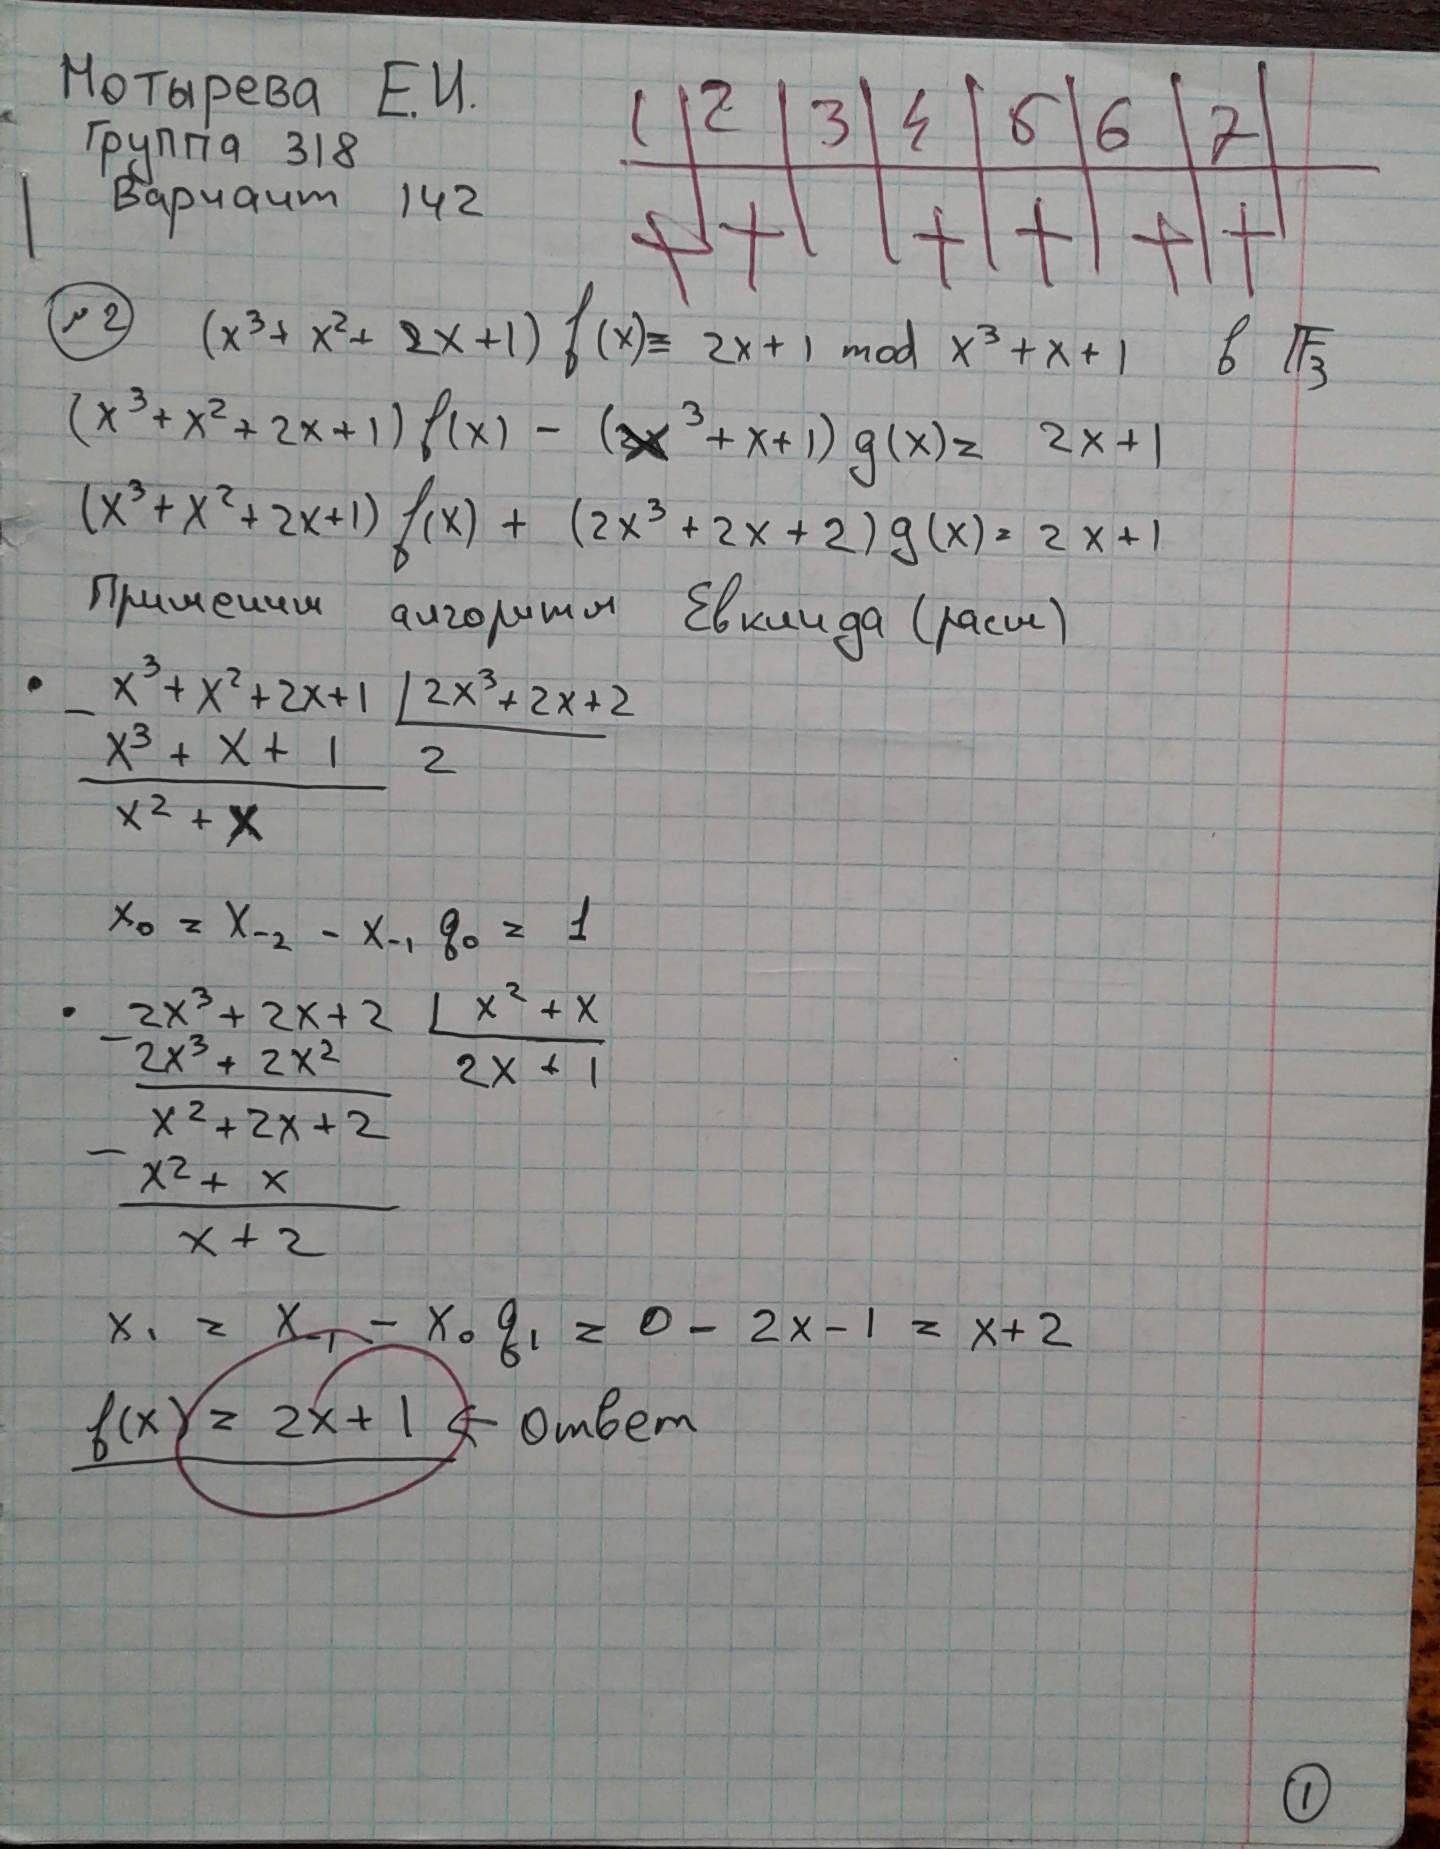 Мотырева Е.И.
Группа 318
Вариант 142
1 2 3 4 5 6 7
+ + + + + +
№2 (x³ + x² + 2x + 1) f(x) ≡ 2x + 1 mod x³ + x + 1 в 𝔽₃
(x³ + x² + 2x + 1) f(x) - (x³ + x + 1) g(x) = 2x + 1
(x³ + x² + 2x + 1) f(x) + (2x³ + 2x + 2) g(x) = 2x + 1
Применим алгоритм Евклида (расш)
• - x³ + x² + 2x + 1 | 2x³ + 2x + 2
x³ + x + 1 2
x² + x
x₀ = x₋₂ - x₋₁ q₀ = 1
• - 2x³ + 2x + 2 | x² + x
2x³ + 2x² 2x + 1
x² + 2x + 2
- x² + x
x + 2
x₁ = x₋₁ - x₀ q₁ = 0 - 2x - 1 = x + 2
f(x) = 2x + 1 ← ответ
1